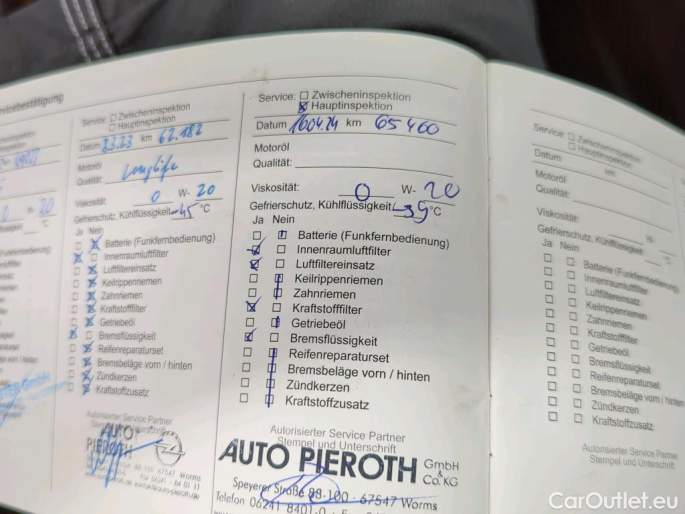 vicebestätigung
Service: Zwischeninspektion
Hauptinspektion
Datum 8.3.23 km 62.182
Motoröl
Qualität: Longlife
Viskosität: 0 W- 20
Gefrierschutz, Kühlflüssigkeit -45 °C
Ja Nein
Batterie (Funkfernbedienung)
Innenraumluftfilter
Luftfiltereinsatz
Keilrippenriemen
Zahnriemen
Kraftstofffilter
Getriebeöl
Bremsflüssigkeit
Reifenreparaturset
Bremsbeläge vorn / hinten
Zündkerzen
Kraftstoffzusatz
Autorisierter Service Partner
Stempel und Unterschrift
AUTO
PIEROTH
67547 Worms
Service: Zwischeninspektion
Hauptinspektion
Datum 16.04.24 km 65400
Motoröl
Qualität:
Viskosität: 0 W- 20
Gefrierschutz, Kühlflüssigkeit -39 °C
Ja Nein
Batterie (Funkfernbedienung)
Innenraumluftfilter
Luftfiltereinsatz
Keilrippenriemen
Zahnriemen
Kraftstofffilter
Getriebeöl
Bremsflüssigkeit
Reifenreparaturset
Bremsbeläge vorn / hinten
Zündkerzen
Kraftstoffzusatz
Autorisierter Service Partner
Stempel und Unterschrift
AUTO PIEROTH GmbH & Co. KG
Speyerer Straße 88-100 · 67547 Worms
Telefon 06241 8401-0
Service: Zwischeninspektion
Hauptinspektion
Datum km
Motoröl
Qualität:
Viskosität: W-
Gefrierschutz, Kühlflüssigkeit °C
Ja Nein
Batterie (Funkfernbedienung)
Innenraumluftfilter
Luftfiltereinsatz
Keilrippenriemen
Zahnriemen
Kraftstofffilter
Getriebeöl
Bremsflüssigkeit
Reifenreparaturset
Bremsbeläge vorn / hinten
Zündkerzen
Kraftstoffzusatz
Autorisierter Service Partner
Stempel und Unterschrift
CarOutlet.eu